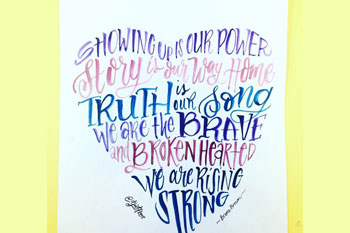 SHOWING UP IS OUR POWER
Story is our Way Home
TRUTH is our Song
WE ARE THE BRAVE
and BROKEN HEARTED
WE ARE RISING
STRONG
-Brené Brown-